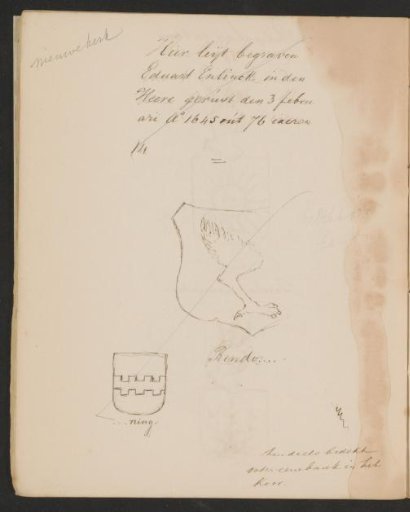 nieuwekerk
Hier leijt begraven
Eduart in den
Heere gerust den 3 febru
ari A° 1645 out 76 iaeren
Rindo....
....ning.
ten deele bedekt
onder eene bank in het
koor